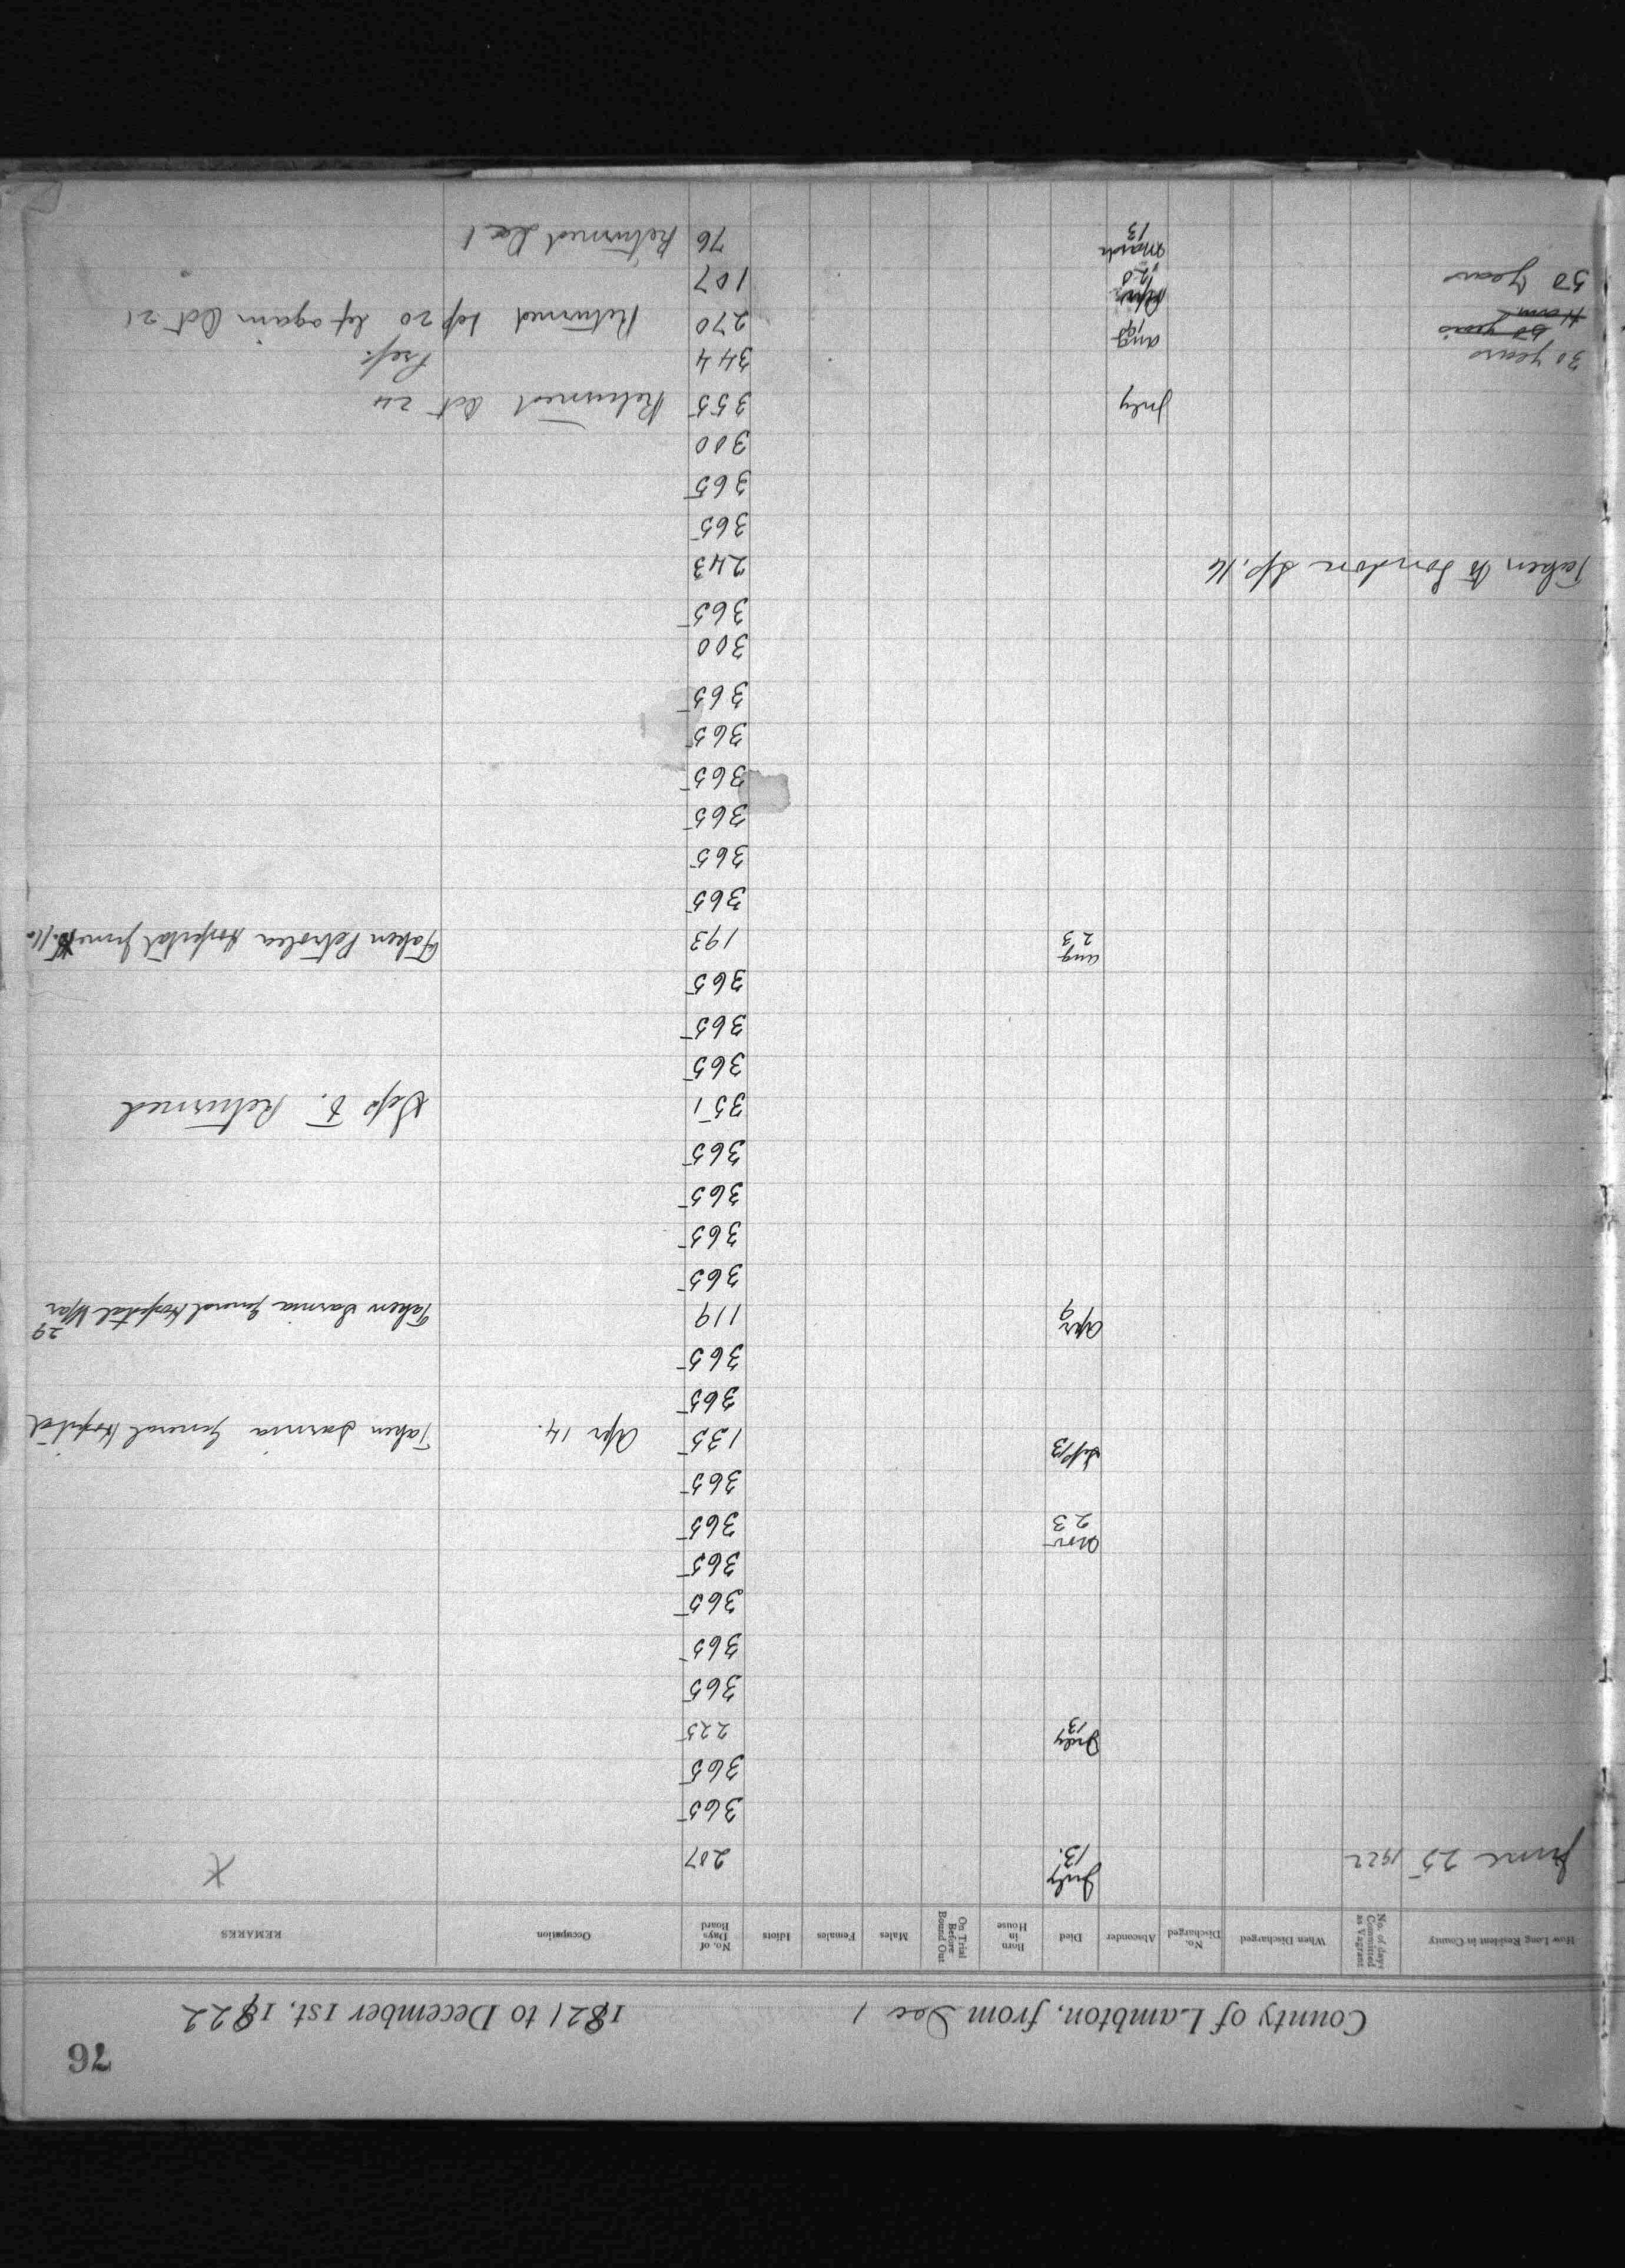 76
County of Lambton, from Dec 1 1921 to December 1st, 1922
How Long Resident in County | No. of days Committed as Vagrant | When Discharged | No. Discharged | Absconder | Died | Born in House | On Trial Before Bound Out | Males | Females | Idiots | No. of Days Board | Occupation | REMARKS
June 25 1922 July 13. 207 X
365
365
July 13 225
365
365
365
365
23 365
365
Sep 13 135 Apr 14. Taken Sarnia General Hospital
365
365
Apr 9 119 Taken Sarnia General Hospital Mar 29
365
365
365
365
351 Sep 5. Returned
365
365
365
Aug 23 193 Taken Petrolea Hospital June 11.
365
365
365
365
365
365
300
365
Taken to London Sp. 14 243
365
365
300
July 355 Returned Oct 24
30 years 344
50 years Aug 270 Returned Sep 20 left again Oct 21
50 years 20 107
March 13 76 Returned Dec 1